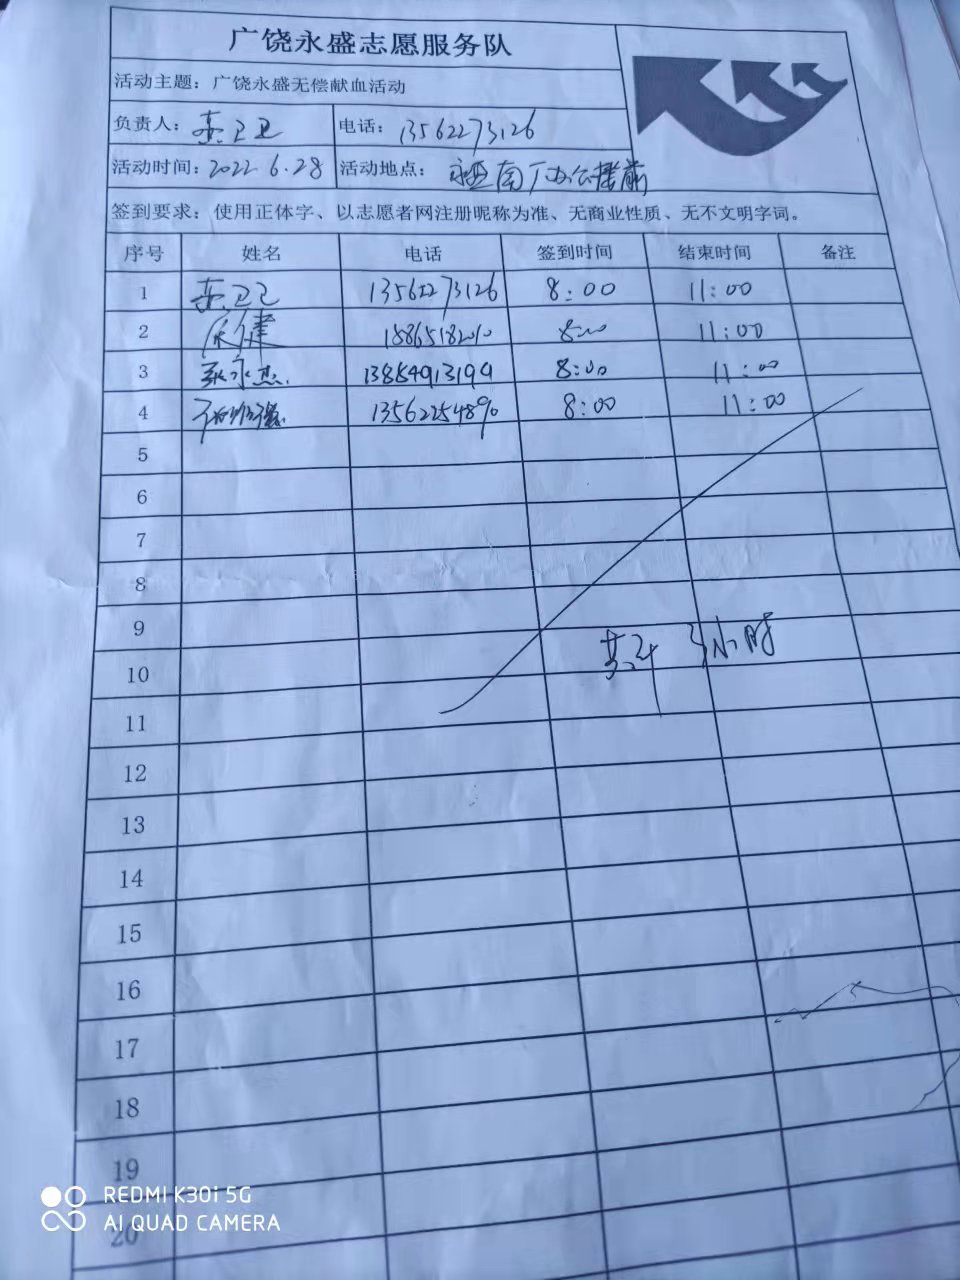 广饶永盛志愿服务队
活动主题：广饶永盛无偿献血活动
负责人： 电话：13562273126
活动时间：2022 6.28 活动地点：永盛南厂办公楼前
签到要求：使用正体字、以志愿者网注册昵称为准、无商业性质、无不文明字词。
序号 姓名 电话 签到时间 结束时间 备注
1 13562273126 8:00 11:00
2 8:00 11:00
3 张永杰 13854913199 8:00 11:00
4 13562254890 8:00 11:00
5
6
7
8
9
共计 3小时
10
11
12
13
14
15
16
17
18
19
20
REDMI K30i 5G
AI QUAD CAMERA